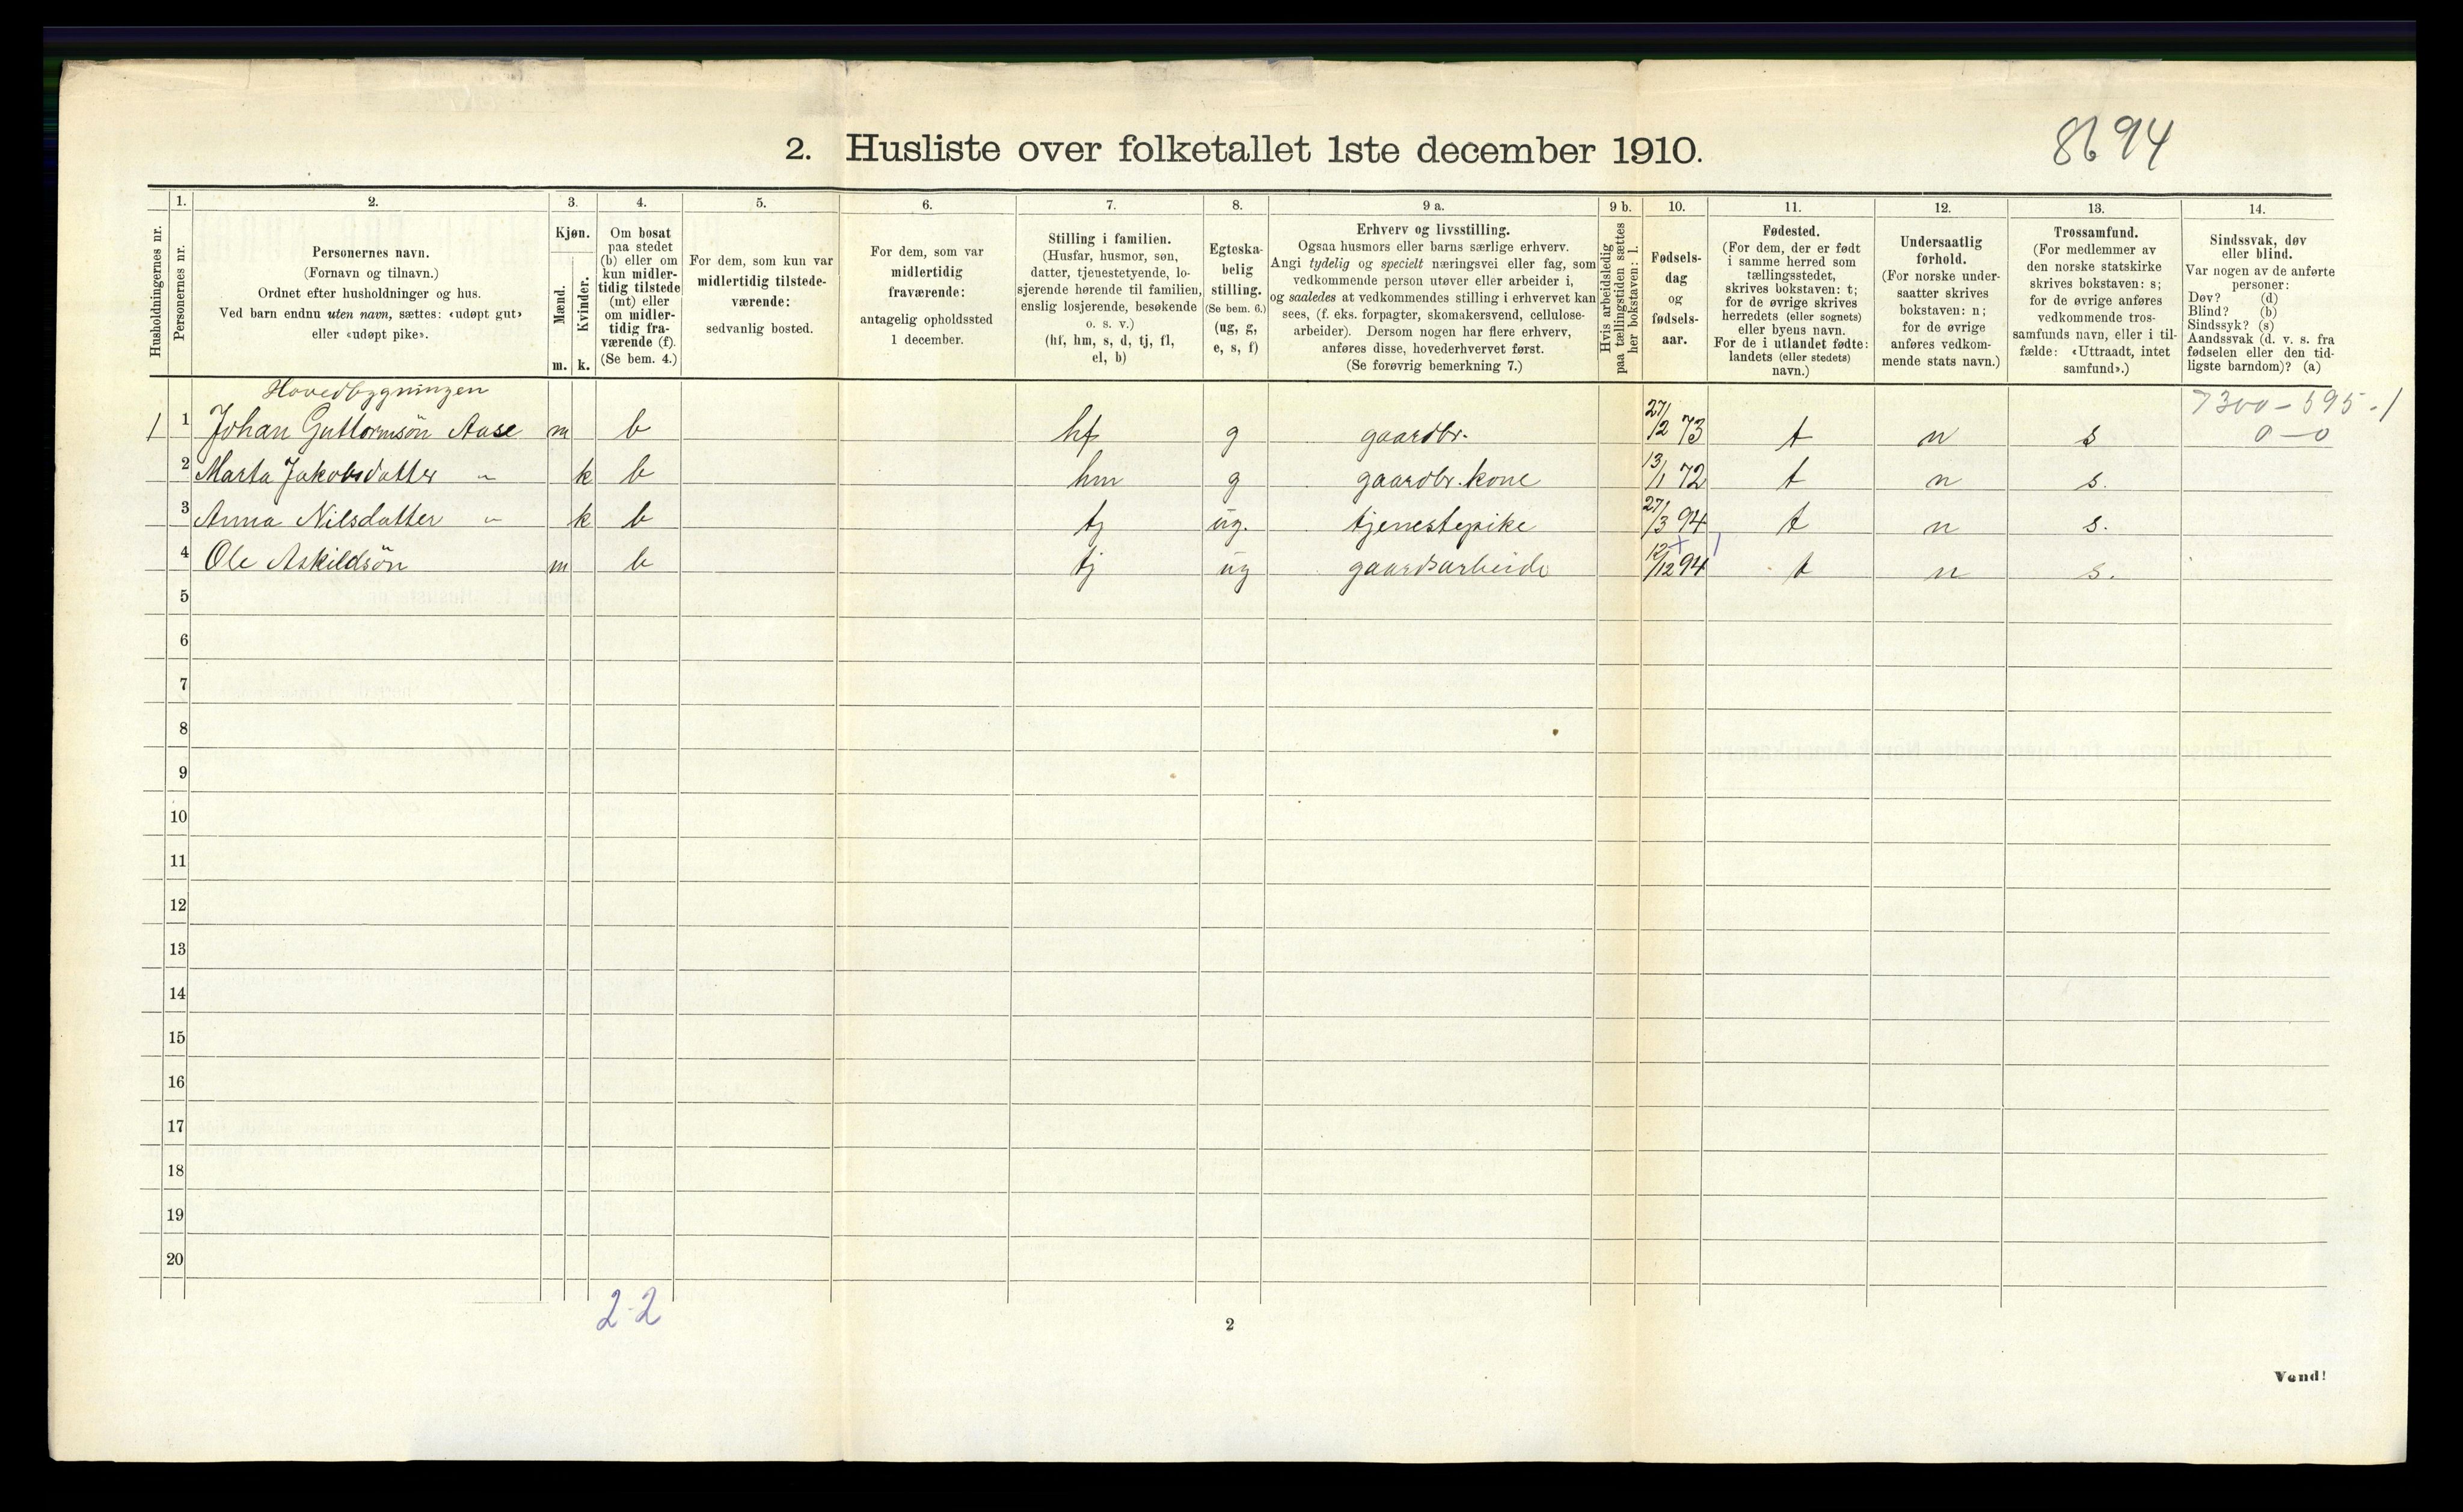 2. Husliste over folketallet 1ste december 1910.
8694
Husholdningernes nr.
1.
Personernes nr.
2.
Personernes navn.
(Fornavn og tilnavn.)
Ordnet efter husholdninger og hus.
Ved barn endnu uten navn, sættes: «udøpt gut»
eller «udøpt pike».
3.
Kjøn.
Mænd.
Kvinder.
m. k.
4.
Om bosat
paa stedet
(b) eller om
kun midler-
tidig tilstede
(mt) eller
om midler-
tidig fra-
værende (f).
(Se bem. 4.)
5.
For dem, som kun var
midlertidig tilstede-
værende:
sedvanlig bosted.
6.
For dem, som var
midlertidig
fraværende:
antagelig opholdssted
1 december.
7.
Stilling i familien.
(Husfar, husmor, søn,
datter, tjenestetyende, lo-
sjerende hørende til familien,
enslig losjerende, besøkende
o. s. v.)
(hf, hm, s, d, tj, fl,
el, b)
8.
Egteska-
belig
stilling.
(Se bem. 6.)
(ug, g,
e, s, f)
9 a.
Erhverv og livsstilling.
Ogsaa husmors eller barns særlige erhverv.
Angi tydelig og specielt næringsvei eller fag, som
vedkommende person utøver eller arbeider i,
og saaledes at vedkommendes stilling i erhvervet kan
sees, (f. eks. forpagter, skomakersvend, cellulose-
arbeider). Dersom nogen har flere erhverv,
anføres disse, hovederhvervet først.
(Se forøvrig bemerkning 7.)
9 b.
Hvis arbeidsledig
paa tællingstiden sættes
her bokstaven: l.
10.
Fødsels-
dag
og
fødsels-
aar.
11.
Fødested.
(For dem, der er født
i samme herred som
tællingsstedet,
skrives bokstaven: t;
for de øvrige skrives
herredets (eller sognets)
eller byens navn.
For de i utlandet fødte:
landets (eller stedets)
navn.)
12.
Undersaatlig
forhold.
(For norske under-
saatter skrives
bokstaven: n;
for de øvrige
anføres vedkom-
mende stats navn.)
13.
Trossamfund.
(For medlemmer av
den norske statskirke
skrives bokstaven: s;
for de øvrige anføres
vedkommende tros-
samfunds navn, eller i til-
fælde: «Uttraadt, intet
samfund».)
14.
Sindssvak, døv
eller blind.
Var nogen av de anførte
personer:
Døv? (d)
Blind? (b)
Sindssyk? (s)
Aandssvak (d. v. s. fra
fødselen eller den tid-
ligste barndom)? (a)
Hovedbygningen
7300 - 595 - 1
1 1 Johan Guttormsön Aase m b hf g gaardbr. 27/2 73 t n s 0 - 0
2 Marta Jakobsdatter " k b hm g gaardbr. kone 13/1 72 t n s.
3 Anna Nilsdatter " k b tj ug. tjenestepike 27/3 94 t n s.
4 Ole Askildsön m b tj ug gaardsarbeide 12/12 94 t n s.
5
6
7
8
9
10
11
12
13
14
15
16
17
18
19
20
2-2
2
Vend!